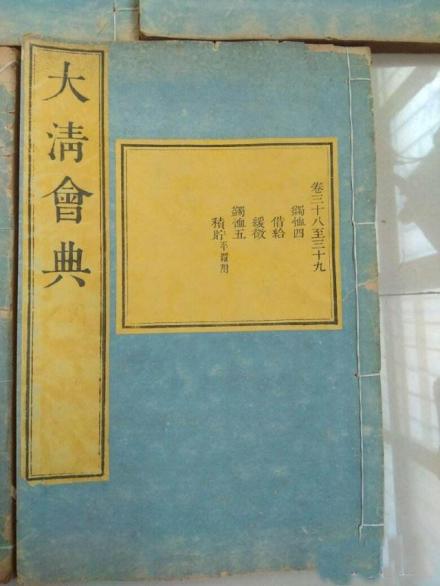 大清會典
卷三十八至三十九
蠲恤四
借給
緩徵
蠲恤五
積貯平糶附